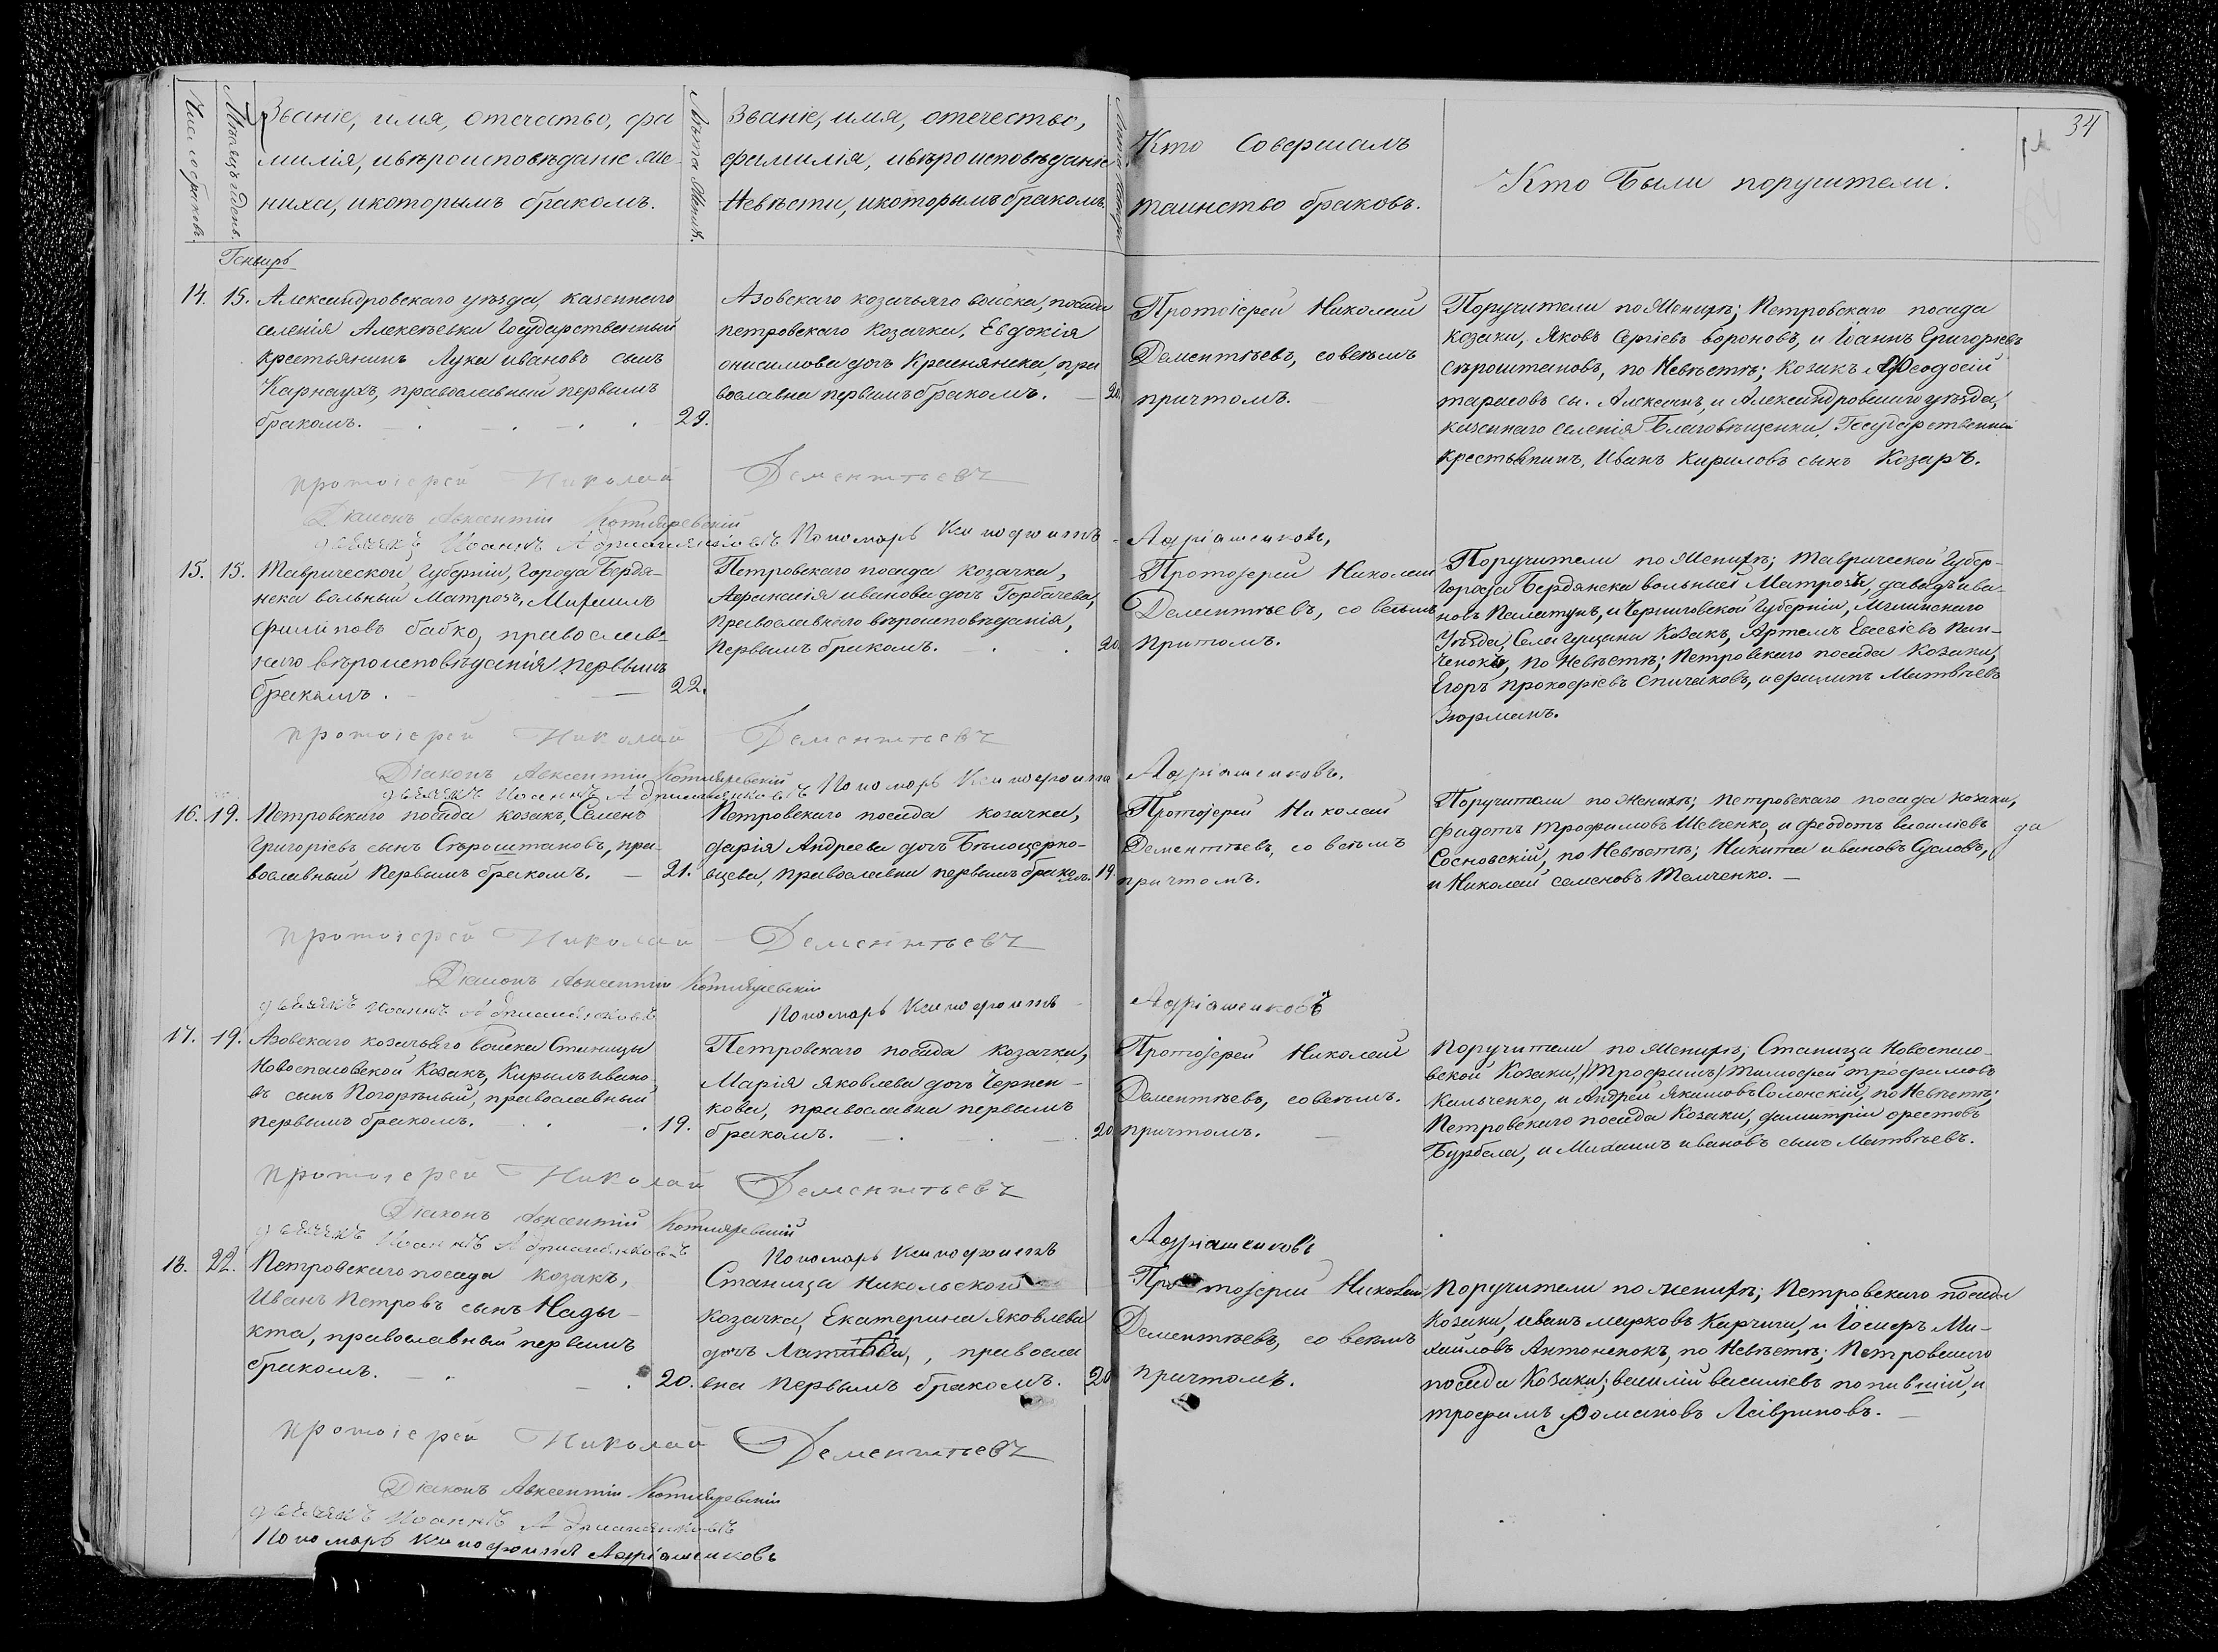 34
Число браковъ.
Мѣсяцъ и день.
Званіе, имя, отечество, фа
милія, и вѣроисповѣданіе же-
ниха, и которымъ бракомъ.
Лѣта Жениха.
Званіе, имя, отечество,
фамилія, и вѣроисповѣданіе
Невѣсты, и которымъ бракомъ.
Лѣта Невѣсты
Кто Совершалъ
таинство браковъ.
Кто Были поручители.
Генварь
14. 15. Александровскаго уѣзда, казеннаго
селенія Алексѣевки Государственный
крестьянинъ Лука ивановъ сынъ
Карнаухъ, православный первымъ
бракомъ. 29.
Азовскаго козачьяго войска, посада
петровскаго Козачка, Евдокія
онисимова дочь Краснянска, пра
вославна первымъ бракомъ. 20.
Протоіерей Николай
Дементѣевъ, со всѣмъ
причтомъ.
Поручители по Женихѣ; Петровскаго посада
козаки, Яковъ Сергіевъ вороновъ, и Іоаннъ Григорьевъ
Сѣроштановъ, по Невѣстѣ; Козакъ Феодосій
тарасовъ сы. Алексинъ, и Александровскаго уѣзда,
казеннаго селенія Благовѣщенки, Государственный
крестьянинъ, Иванъ Кириловъ сынъ Козаръ.
протоіерей Николай Дементьевъ
Діаконъ Авксентій Котляревскій
дьячекъ Иоаннъ Адріашенковъ Пономарь Ксинофонтъ Адріашенковъ,
15. 15. Таврической Губерніи, Города Бердя-
нска вольный Матрозъ, Михаилъ
филиповъ бабко, православ-
наго вѣроисповѣданія первымъ
бракомъ. 22.
Петровскаго посада козачка,
Афанасія иванова дочь Горбачева,
Православнаго вѣроисповѣданія,
Первымъ бракомъ. 20.
Протоіерей Николай
Дементѣевъ, со всѣмъ
причтомъ.
Поручители по Женихѣ; Таврической Губер-
Города Бердянска вольный Матрозъ, давыдъ ива-
новъ Палатунъ, и Черниговской Губерніи, Мглинскаго
Уѣзда, Села Гущана Козакъ, Артемъ Евсѣевъ Пан-
ченокъ, по Невѣстѣ; Петровскаго посада Козаки,
Егоръ прокофіевъ Спичаковъ, и филипъ Матвѣевъ
Зюрманъ.
протоіерей Николай Дементьевъ
Діаконъ Авксентій Котляревскій
дьячекъ Иоаннъ Адріашенковъ Пономарь Ксинофонтъ Адріашенковъ.
16. 19. Петровскаго посада козакъ, Семенъ
Григоріевъ сынъ Сѣроштановъ, пра-
вославный Первымъ бракомъ. 21.
Петровскаго посада козачка,
дарія Андреева дочь Бѣлоцерко-
вцева, православна первымъ бракомъ. 19.
Протоіерей Николай
Дементѣевъ, со всѣмъ
причтомъ.
Поручители по Женихѣ; петровскаго посада козаки,
федотъ трофимовъ Шевченко, и феодотъ василіевъ
Сосновскій, по Невѣстѣ; Никита ивановъ Сусловъ,
и Николай семеновъ Темченко.
протоіерей Николай Дементьевъ
Діаконъ Авксентій Котляревскій
дьячекъ Иоаннъ Адріашенковъ Пономарь Ксинофонтъ Адріашенковъ
17. 19. Азовскаго козачьяго войска Станицы
Новоспасовской Козакъ, Кирылъ ивано-
въ сынъ Погорѣлый, православный
первымъ бракомъ. 19.
Петровскаго посада козачка,
Марія Яковлева дочь Чернен-
кова, православна первымъ
бракомъ. 20
Протоіерей Николай
Дементѣевъ, со всѣмъ.
причтомъ.
Поручители по Женихѣ; Станица Новоспасо-
вской Козаки, /Трофимъ/ Тимофей трофимовъ
Кальченко, и Андрей Якимовъ Солонскій, по Невѣстѣ;
Петровскаго посада Козаки, димитрій орестовъ
Бурбела, и Михаилъ ивановъ сынъ Матвѣевъ.
протоіерей Николай Дементьевъ
Діаконъ Авксентій Котляревскій
дьячекъ Иоаннъ Адріашенковъ Пономарь Ксинофонтъ Адріашенковъ
18. 22. Петровскаго посада козакъ,
Иванъ Петровъ сынъ Нады-
кта, православный первымъ
бракомъ. 20.
Станица Никольской
Козачка, Екатерина Яковлева
дочь, правосла
вна первымъ бракомъ. 20
Протоіерей Николай
Дементѣевъ, со всѣмъ
причтомъ.
Поручители по женихѣ; Петровскаго посада
Козаки, иванъ марковъ Карчига, и Іосифъ Ми-
хаиловъ Антоненокъ, по Невѣстѣ; Петровскаго
посада Козаки; василій василіевъ попившій, и
трофимъ романовъ Лавриновъ.
протоіерей Николай Дементьевъ
Діаконъ Авксентій Котляревскій
дьячекъ Иоаннъ Адріашенковъ
Пономарь Ксинофонтъ Адріашенковъ